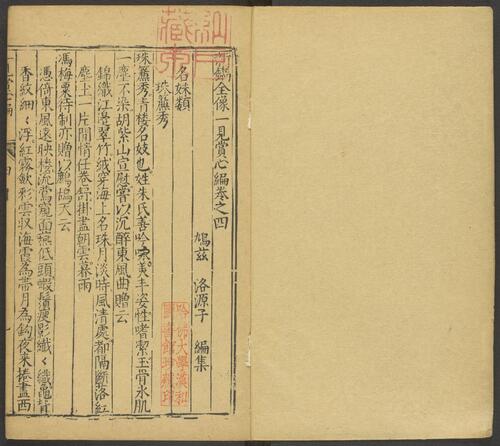 新鐫全像一見賞心編卷之四
鳩茲 洛源子 編集
名妹類
珠簾秀
珠簾秀青樓名妓也姓朱氏善吟哦美丰姿性嗜潔玉骨氷肌
一塵不染胡紫山宣慰嘗以沉醉東風曲贈云
錦織江邊翠竹絨穿海上名珠月淡時風清處都隔斷落紅
塵土一片閒情任卷舒掛盡朝雲暮雨
馮海粟待制亦贈以鷓鴣天云
憑倚東風遠映樓流鶯窺面燕低頭蝦鬚瘦影纖纖織龜背
香紋細細浮紅霧歛彩雲収海霞為帶月為鈎夜來捲盡西
哈佛大學漢和圖書館珍藏印